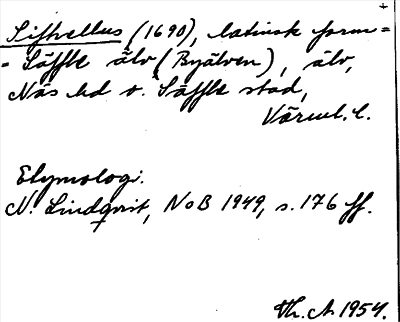 Siflvellus (1690), latinsk form =
= Säffle älv (Byälven), älv,
Näs hd o. Säffle stad,
Värml. l.
Etymologi.
N. Lindqvist, NoB 1949, s. 176 ff.
Th. A 1954.